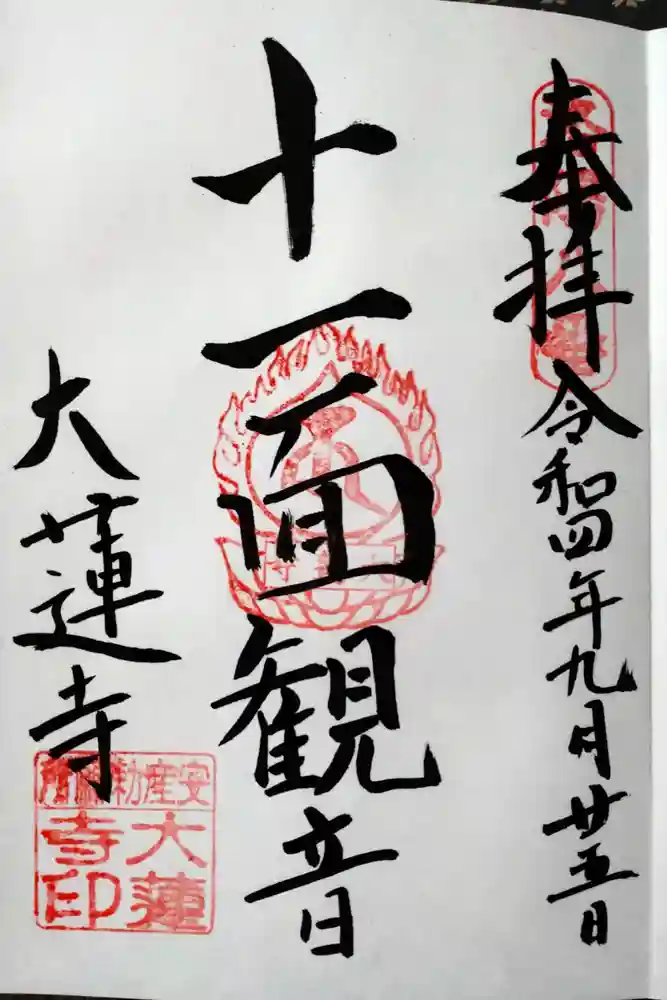 奉拝
令和四年九月廿五日
十一面観音
大蓮寺
安産勅願所
大蓮寺印